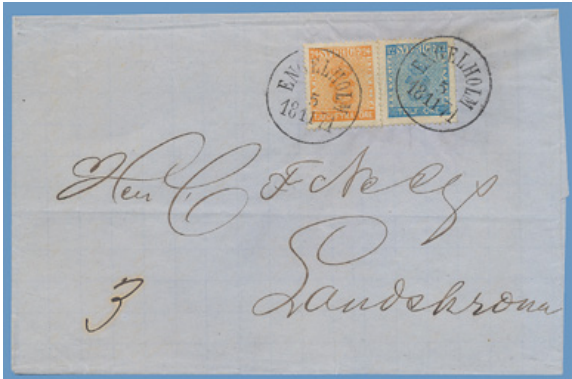 ENGELHOLM
5
18 11 71
ENGELHOLM
5
18 11 71
Herr C F
Landskrona
3